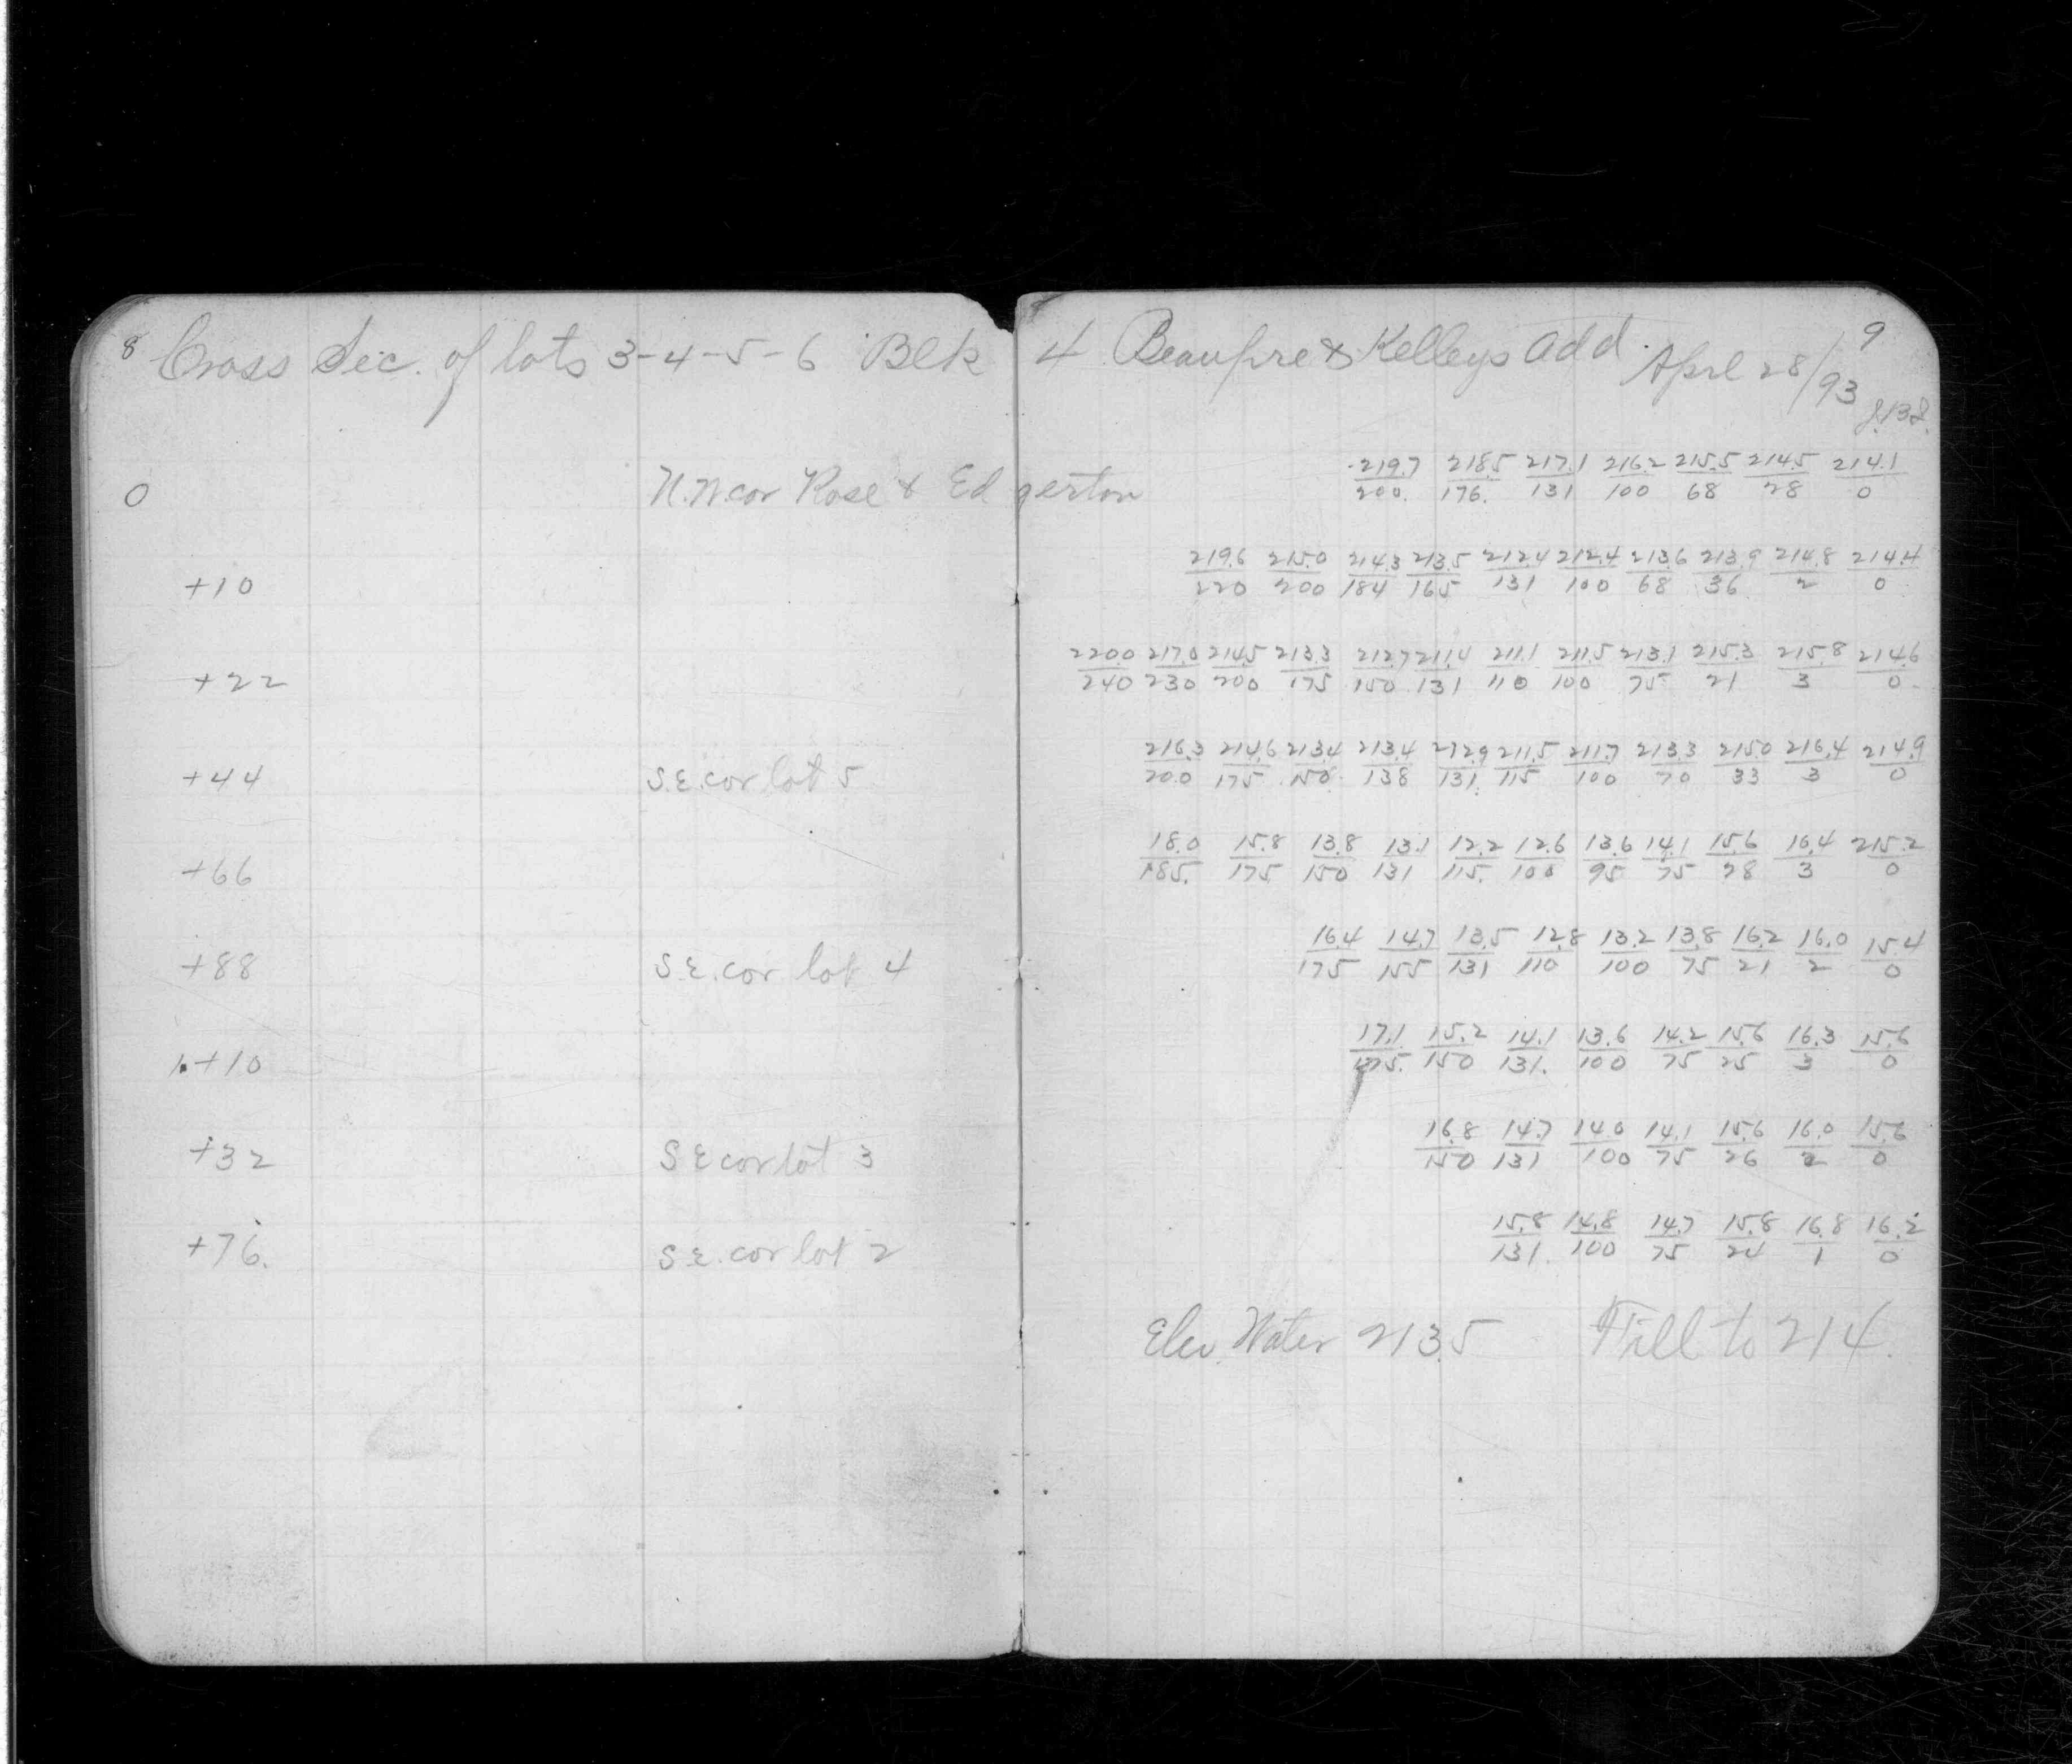 8 Cross Sec. of lots 3-4-5-6 Blk 4 Beaupre & Kelleys Add. April 28/93 9
0 N.W. cor Rose & Edgerton 219.7/200. 218.5/176. 217.1/131 216.2/100 215.5/68 214.5/28 214.1/0
+10 219.6/220 215.0/200 214.3/184 213.5/165 212.4/131 212.4/100 213.6/68 213.9/36 214.8/2 214.4/0
+22 220.0/240 217.0/230 214.5/200 213.3/175 212.7/150 211.4/131 211.1/110 211.5/100 213.1/75 215.3/21 215.8/3 214.6/0
+44 S.E. cor lot 5 216.3/200 214.6/175 213.4/150 213.4/138 212.9/131 211.5/115 211.7/100 213.3/70 215.0/33 216.4/3 214.9/0
+66 18.0/185. 15.8/175 13.8/150 13.1/131 12.2/115. 12.6/100 13.6/95 14.1/75 15.6/28 16.4/3 215.2/0
+88 S.E. cor lot 4 16.4/175 14.7/155 13.5/131 12.8/110 13.2/100 13.8/75 16.2/21 16.0/2 15.4/0
1.+10 17.1/175. 15.2/150 14.1/131. 13.6/100 14.2/75 15.6/25 16.3/3 15.6/0
+32 S E cor lot 3 16.8/150 14.7/131 14.0/100 14.1/75 15.6/26 16.0/2 15.6/0
+76. S.E. cor lot 2 15.8/131. 14.8/100 14.7/75 15.8/24 16.8/1 16.2/0
Elev. Water 213.5 Fill to 214.